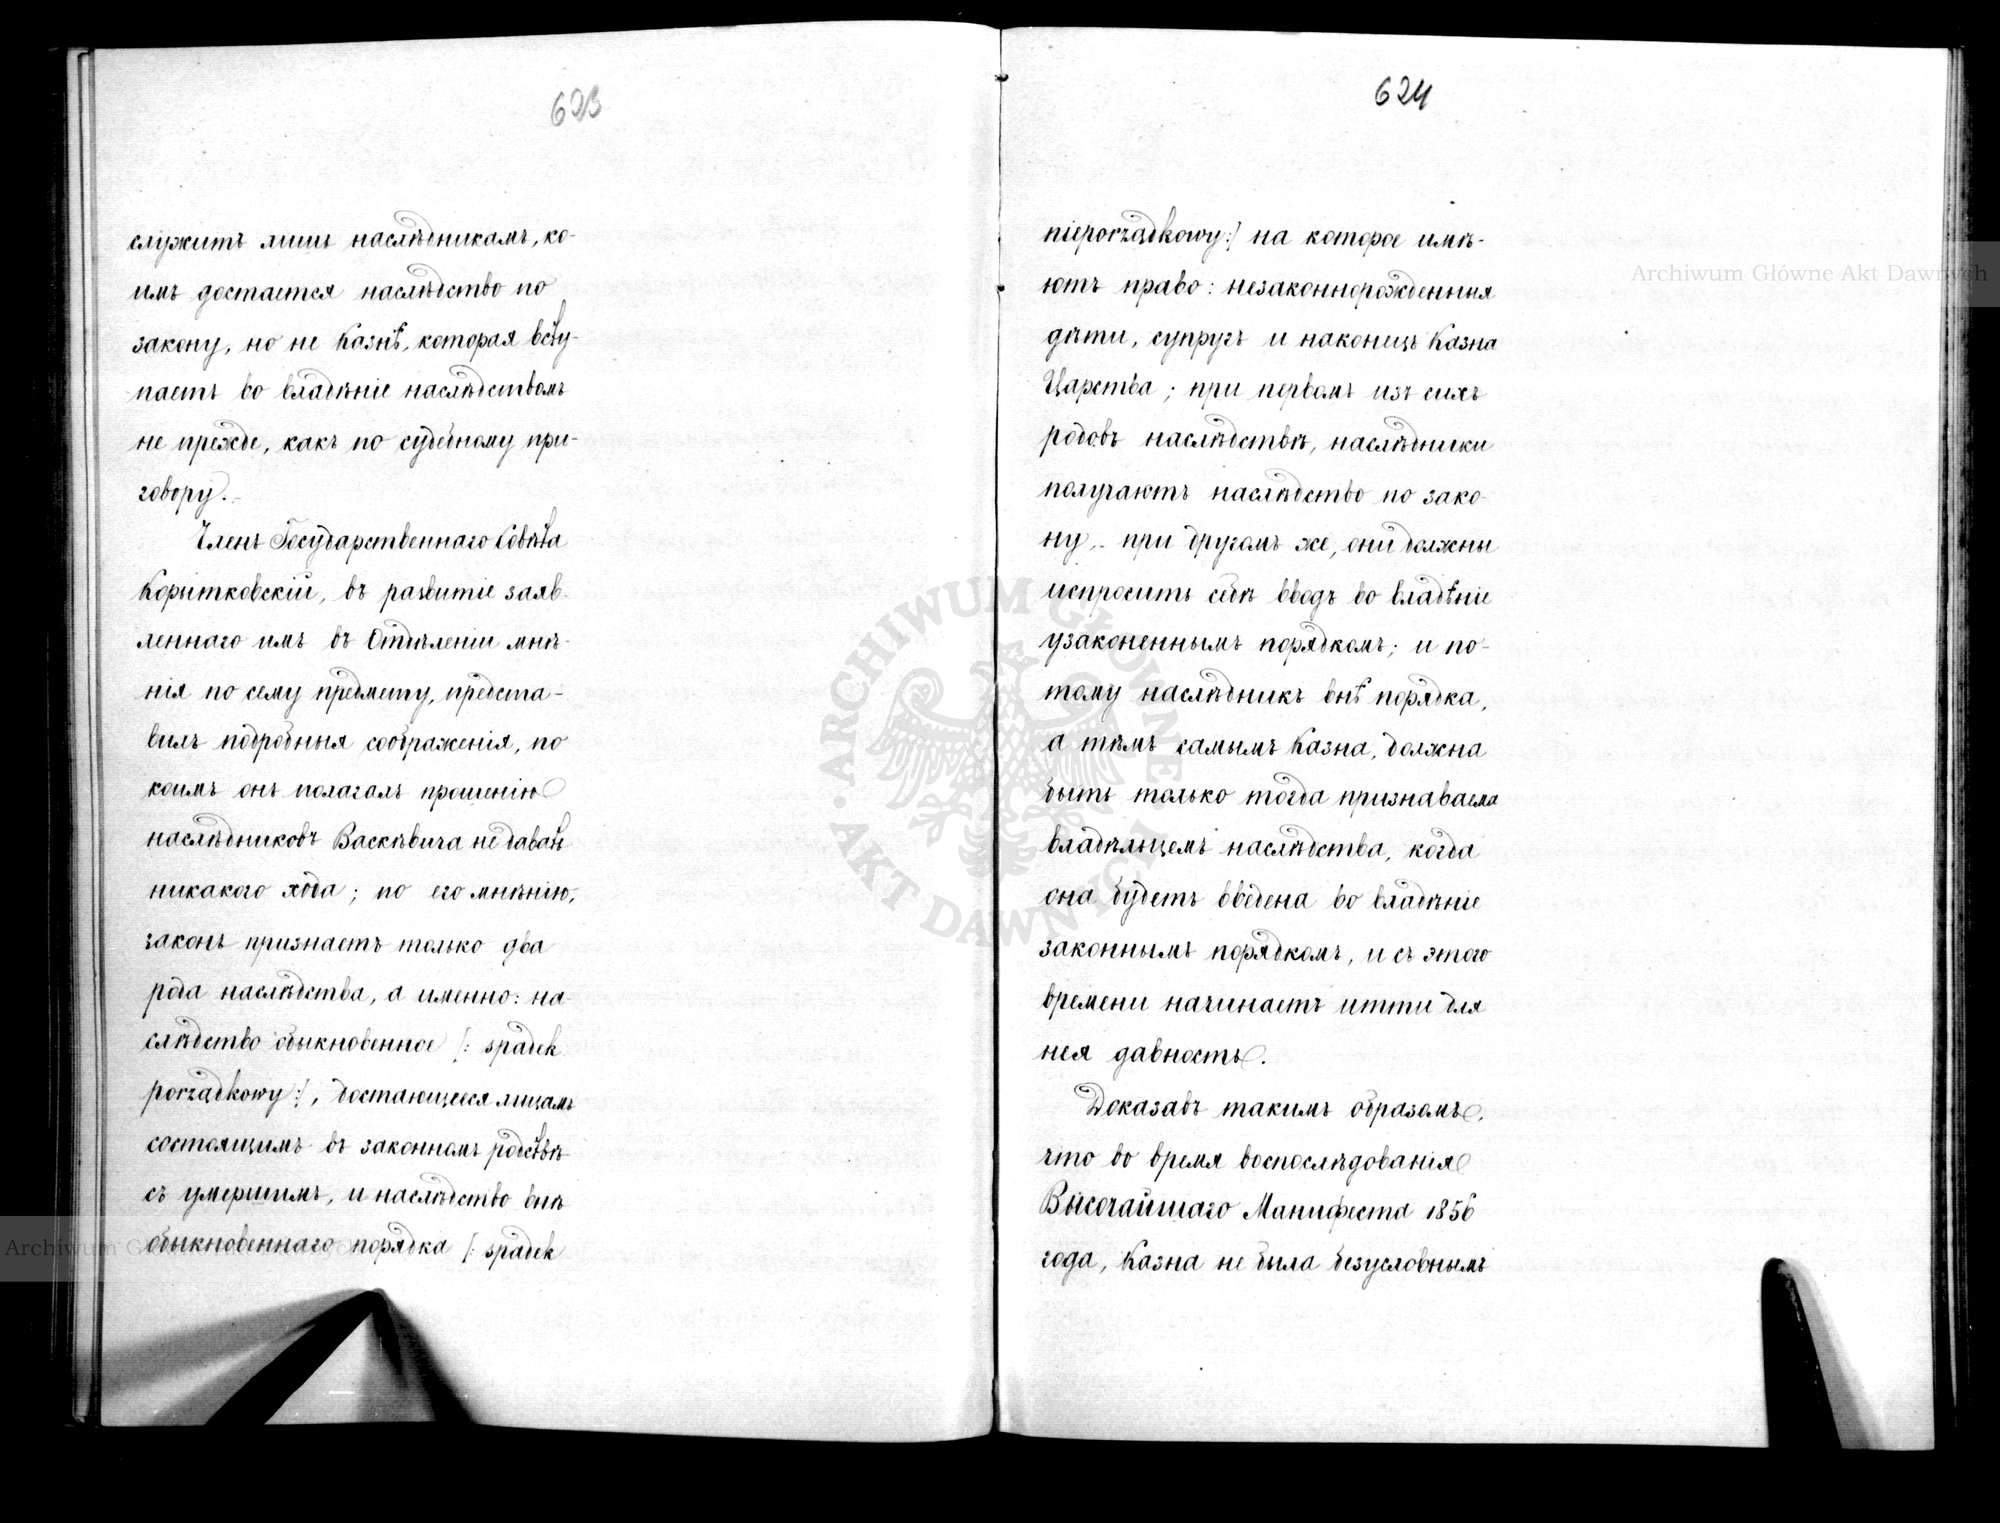 623
служитъ лишь наслѣдникамъ, ко-
имъ достается наслѣдство по
закону, но не Казнѣ, которая всту-
паетъ во владѣніе наслѣдствомъ
не прежде, какъ по судебному при-
говору.
Членъ Государственнаго Совѣта
Корытковскій, въ развитіе заяв-
леннаго имъ въ Отдѣленіи мнѣ-
нія по сему предмету, предста-
вилъ подробныя соображенія, по
коимъ онъ полагалъ прошенію
наслѣдниковъ Васкѣвича не давать
никакого хода; по его мнѣнію,
законъ признаетъ только два
рода наслѣдства, а именно: на-
слѣдство обыкновенное /: spadek
porządkowy :/, достающееся лицамъ
состоящимъ въ законномъ родствѣ
съ умершимъ, и наслѣдство внѣ
обыкновеннаго порядка /: spadek
624
nieporządkowy :/ на которое имѣ-
ютъ право: незаконнорожденныя
дѣти, супругъ и наконецъ Казна
Царства; при первомъ изъ сихъ
родовъ наслѣдствѣ, наслѣдники
получаютъ наслѣдство по зако-
ну, - при другомъ же, они должны
испросить себѣ вводъ во владѣніе
узаконеннымъ порядкомъ; и по-
тому наслѣдникъ внѣ порядка,
а тѣмъ самымъ Казна, должна
быть только тогда признаваема
владѣльцемъ наслѣдства, когда
она будетъ введена во владѣніе
законнымъ порядкомъ, и съ этого
времени начинаетъ итти для
нея давность.
Доказавъ такимъ образомъ,
что во время воспослѣдованія
Высочайшаго Манифеста 1856
года, Казна не была безусловнымъ
Archiwum Główne Akt Dawnych
ARCHIWUM GŁÓWNE AKT DAWNYCH